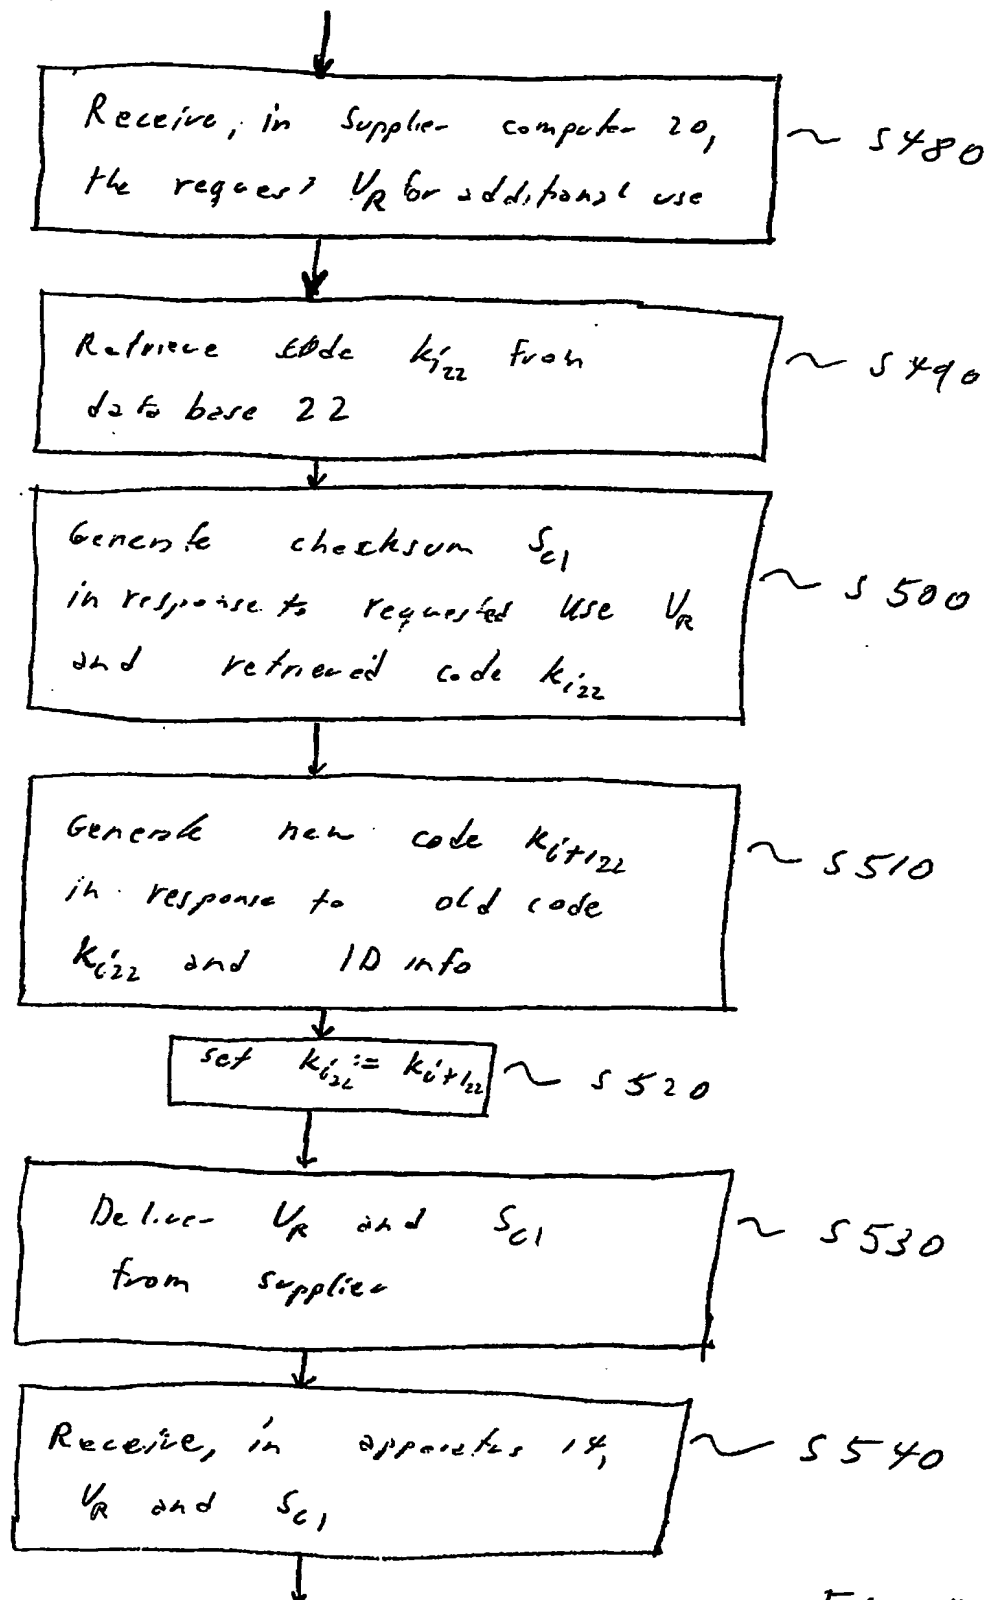 Receive, in Supplier computer 20,
the request U_R for additional use
S480
Retrieve code k_i22 from
data base 22
S490
Generate checksum S_C1
in response to requested use U_R
and retrieved code k_i22
S500
Generate new code k_i+1_22
in response to old code
k_i22 and ID info
S510
set k_i22 := k_i+1_22
S520
Deliver U_R and S_C1
from supplier
S530
Receive, in apparatus 14,
U_R and S_C1
S540